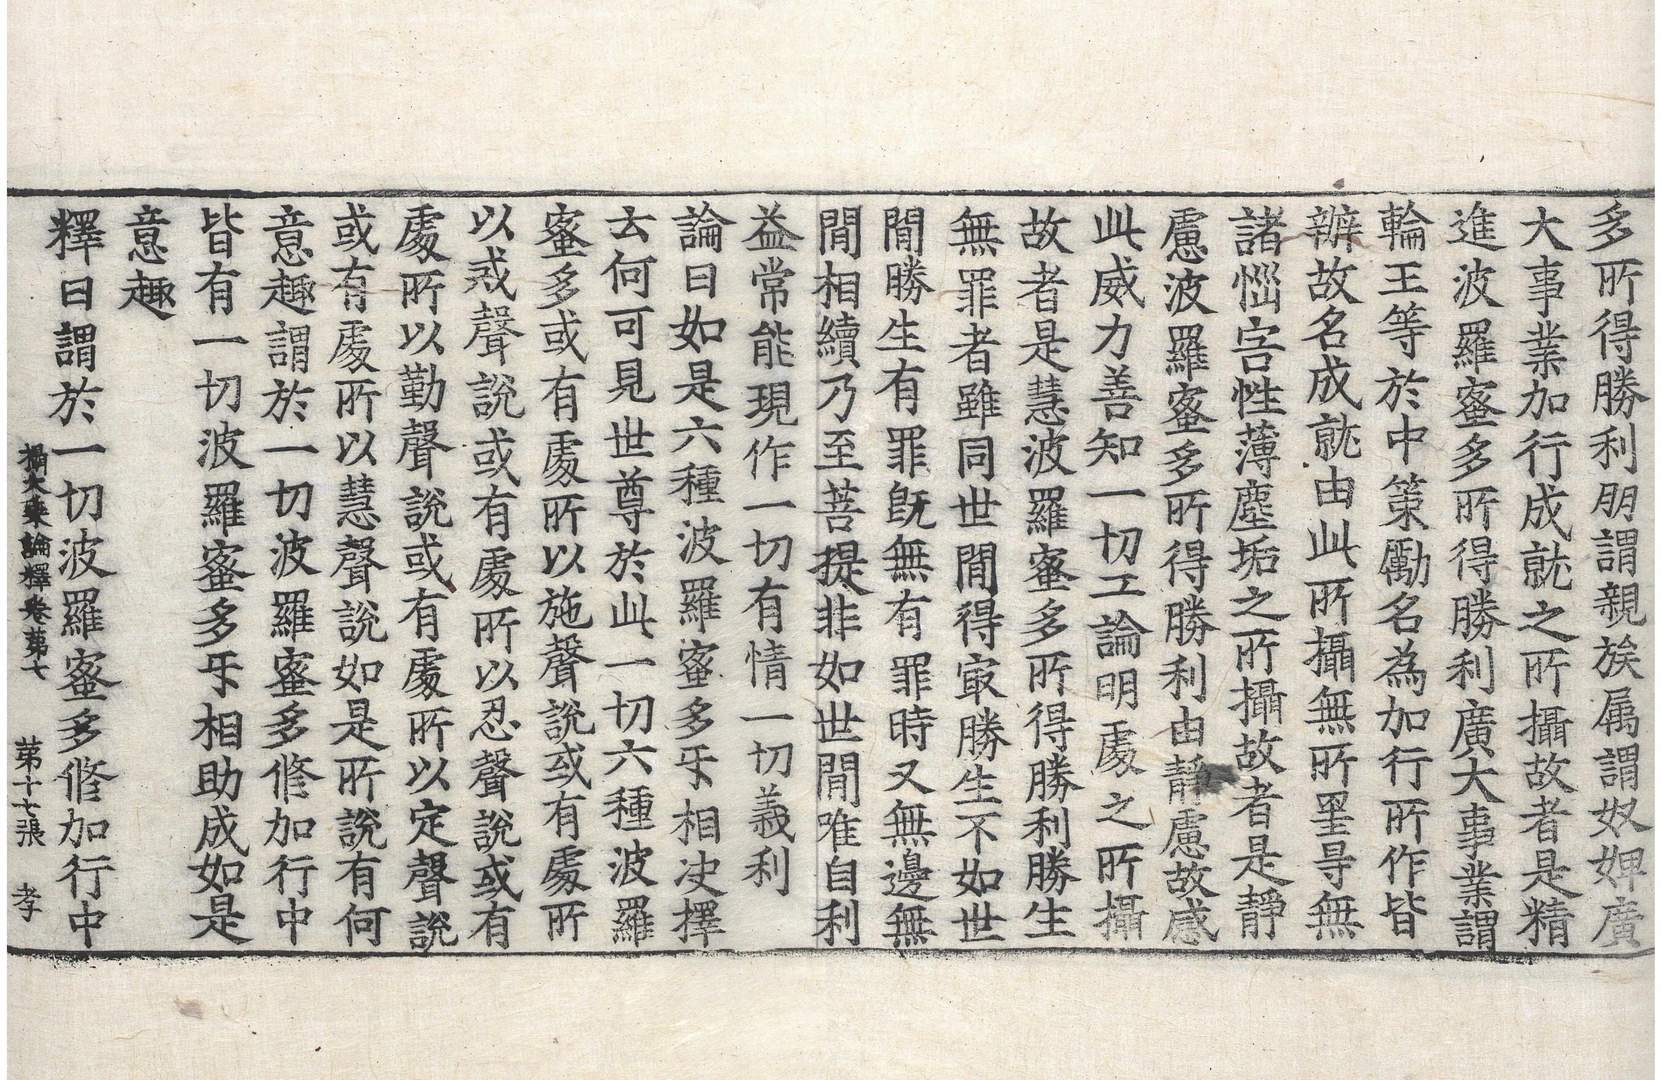 多所得勝利朋謂親族属謂奴婢廣
大事業加行成就之所攝故者是精
進波羅蜜多所得勝利廣大事業謂
輪王等於中策勵名為加行所作皆
辦故名成就由此所攝無所罣㝵無
諸惱害性薄塵垢之所攝故者是靜
慮波羅蜜多所得勝利由靜慮故感
此威力善知一切工論明處之所攝
故者是慧波羅蜜多所得勝利勝生
無罪者雖同世間得㝡勝生不如世
間勝生有罪旣無有罪時又無邊無
間相續乃至菩提非如世間唯自利
益常能現作一切有情一切義利
論曰如是六種波羅蜜多㸦相决擇
云何可見世尊於此一切六種波羅
蜜多或有處所以施聲說或有處所
以戒聲說或有處所以忍聲說或有
處所以勤聲說或有處所以定聲說
或有處所以慧聲說如是所說有何
意趣謂於一切波羅蜜多修加行中
皆有一切波羅蜜多㸦相助成如是
意趣
釋曰謂於一切波羅蜜多修加行中
攝大乘論釋卷苐七 苐十七張 孝